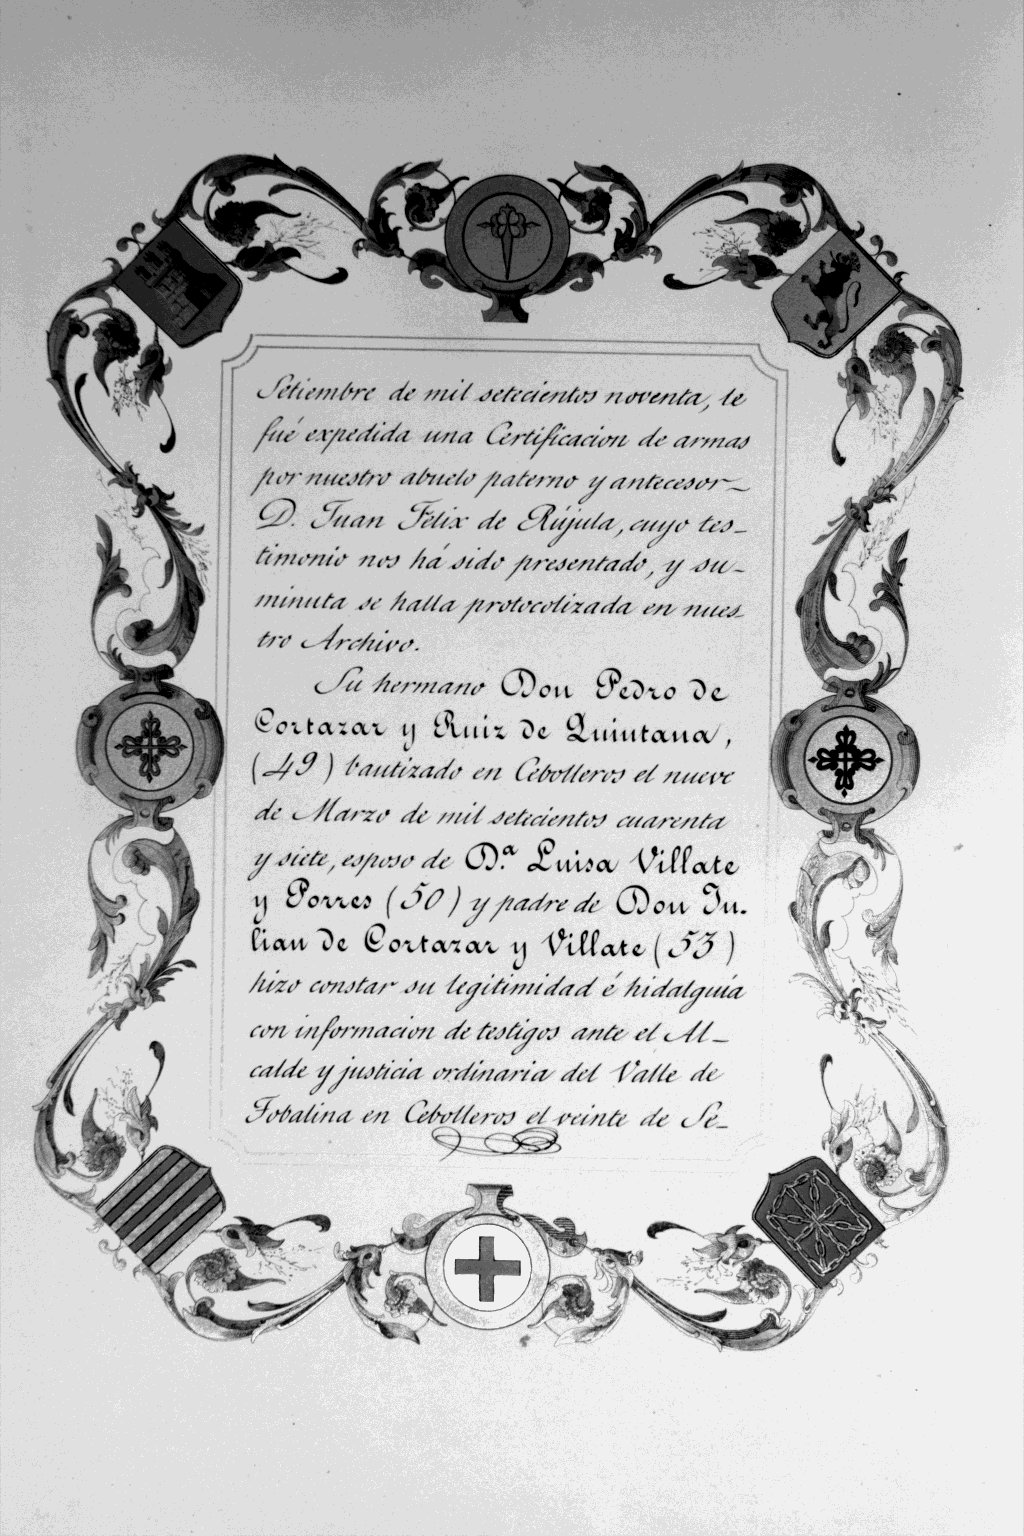 Setiembre de mil setecientos noventa, le
fué expedida una Certificacion de armas
por nuestro abuelo paterno y antecesor_
D. Juan Félix de Rújula, cuyo tes_
timonio nos há sido presentado, y su_
minuta se halla protocolizada en nues_
tro Archivo.
Su hermano Don Pedro de
Cortazar y Ruiz de Quintana,
(49) bautizado en Cebolleros el nueve
de Marzo de mil setecientos cuarenta
y siete, esposo de D.ª Luisa Villate
y Porres (50) y padre de Don Ju-
lian de Cortazar y Villate (53)
hizo constar su legitimidad é hidalguía
con informacion de testigos ante el Al_
calde y justicia ordinaria del Valle de
Tobalina en Cebolleros el veinte de Se_